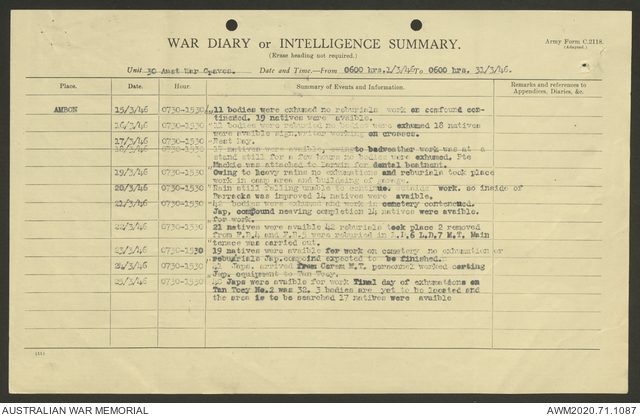 WAR DIARY or INTELLIGENCE SUMMARY.
(Erase heading not required.)
Army Form C.2118.
(Adapted.)
Unit 30 Aust War Graves. Date and Time.—From 0600 hrs.1/3/46 To 0600 hrs. 31/3/46.
Place. Date. Hour. Summary of Events and Information. Remarks and references to Appendices, Diaries, &c.
AMBON 15/3/46 0730-1530 11 bodies were exhumed no reburials work on compound con-
tinued. 19 natives were avaible.
16/3/46 0730-1530 bodies were reburied no bodies were exhumed 18 natives
were avaible sign.writer working on crosses.
17/3/46 0730-1530 Rest Day.
18/3/46 0730-1530 17 natives were avaible, owing to badweather work was at a
stand still for a few hours no bodies were exhumed. Pte
Mackie was attached to for dental
19/3/46 0730-1530 Owing to heavy rains no exhumations and reburials took place
work in camp area and of garage.
20/3/46 0730-1530 Rain still falling unable to work. so inside of
Barracks was improved 14 natives were avaible.
21/3/46 0730-1530 bodies were exhumed and work in cemetery
Jap, compound completion 14 natives were avaible.
for work.
22/3/46 0730-1530 21 natives were avaible 42 reburials took place 2 removed
from and were reburied in Main
tenace was carried out.
23/3/46 0730-1530 19 natives were avaible for work on cemetery no exhumation or
reburials Jap.compoind expected to be finished.
24/3/46 0730-1530 Japs. arrived from Ceram M.T. personnel worked
Jap. equipment to Tan Toey.
25/3/46 0730-1530 Japs were avaible for work Final day of exhumations on
Tan Toey No.2 was 32. 3 bodies are yet to be located and
the area is to be searched 17 natives were avaible
AUSTRALIAN WAR MEMORIAL
AWM2020.71.1087